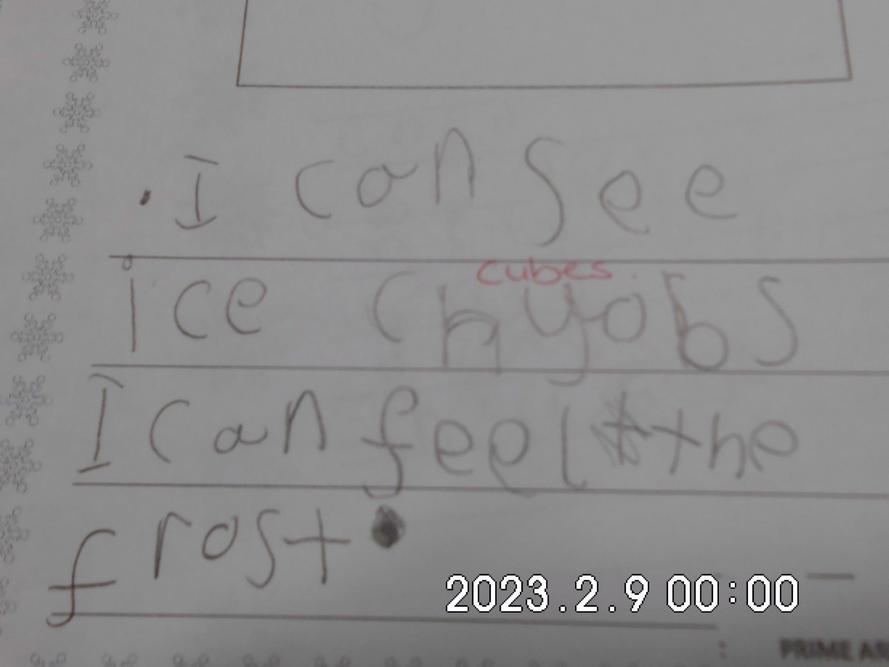 . I can see
cubes.
ice chyobs
I can feel the
frost.
2023.2.9 00:00
PRIME AR